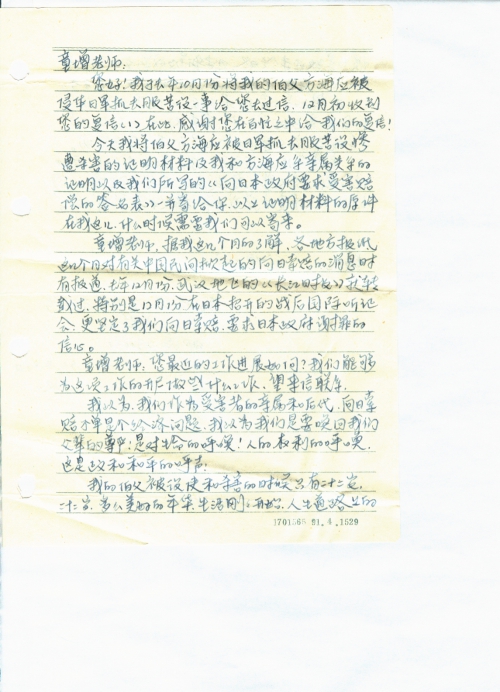 童增老师:
您好!我于去年10月份将我的伯父方海应被
侵华日军抓去服苦役一事给您去过信,12月初收到
您的复信(1)在此,感谢您在百忙之中给我们的复信!
今天我将伯父方海应被日军抓去服苦役惨
遭杀害的证明材料及我和方海应手亲属关系的
证明以及我们所写的《向日本政府要求受害赔
偿的签名表》一并寄给您,以上证明材料的原件
在我这儿,什么时候需要我们可以寄来。
童增老师,据我这几个月的了解,各地方报纸
这几个月对有关中国民间掀起的向日索赔的消息时
有报道,去年12月份,武汉地区的《长江日报》就转
载过,特别是12月份在日本招开的战后国际听证
会,更坚定了我们向日索赔,要求日本政府谢罪的
信心。
童增老师:您最近的工作进展如何?我们能够
为这项工作的开展做些什么工作,望来信联系。
我以为,我们作为受害者的亲属和后代,向日索
赔不单是个经济问题,我以为我们是要唤回我们
父辈的尊严!是对生命的呼唤!人的权利的呼唤,
这是政和和平的呼声!
我的伯父被役使和杀害的时候只有二十二岁,
二十二岁,多么美好的年华,生活刚刚开始,人生道路上的
1701066 81.4.1529